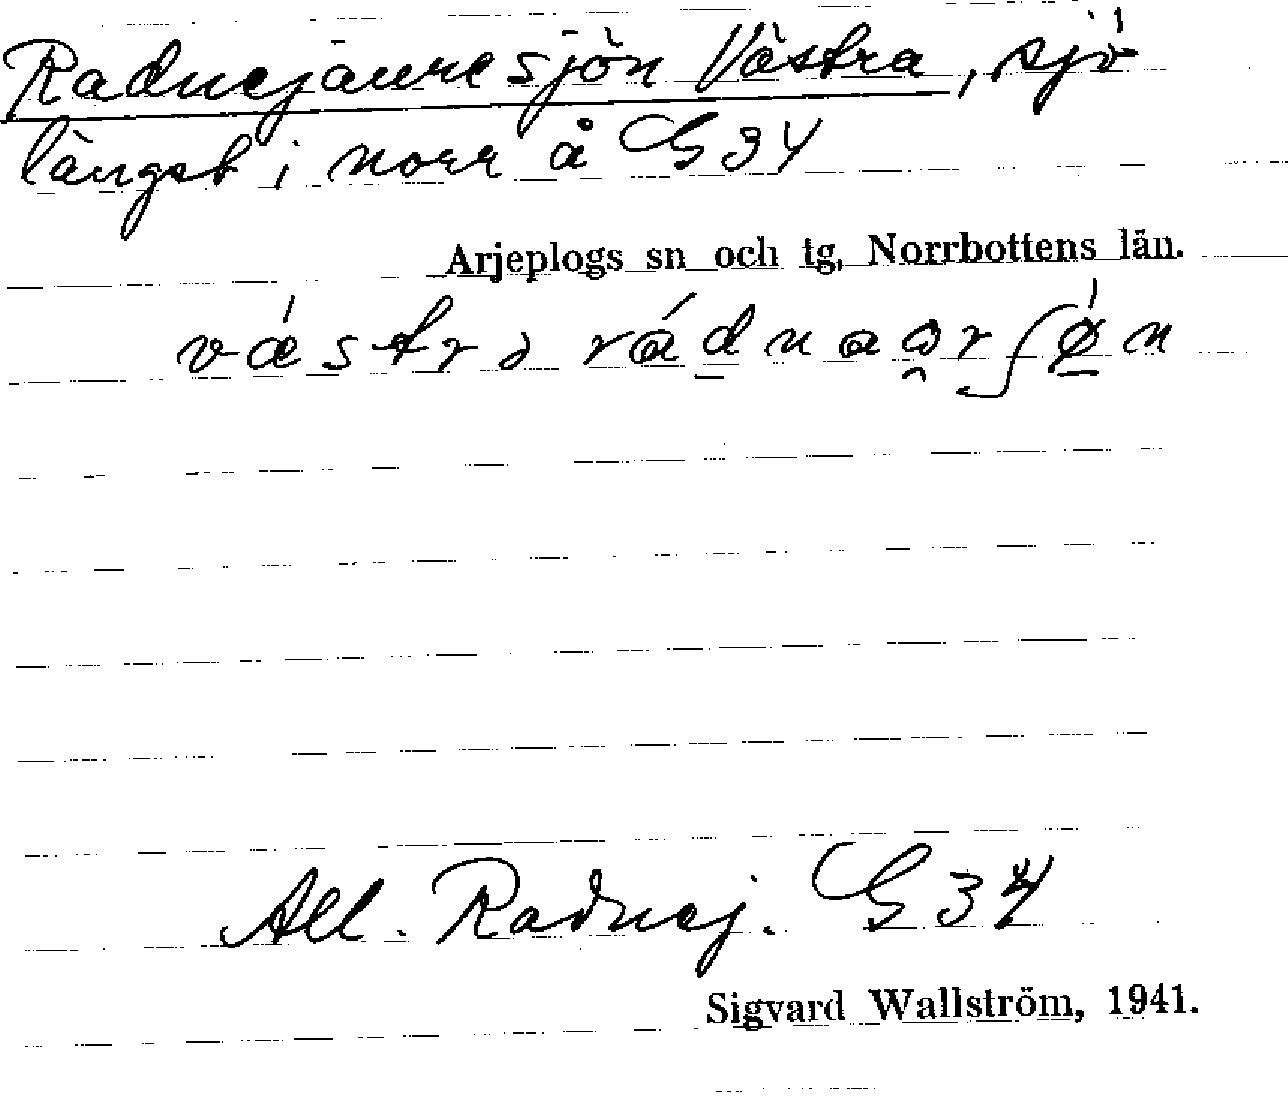 Radnejauresjön Västra, sjö
längst i norr å G 34
Arjeplogs sn och tg, Norrbottens län.
All. Radnej. G 34
Sigvard Wallström, 1941.